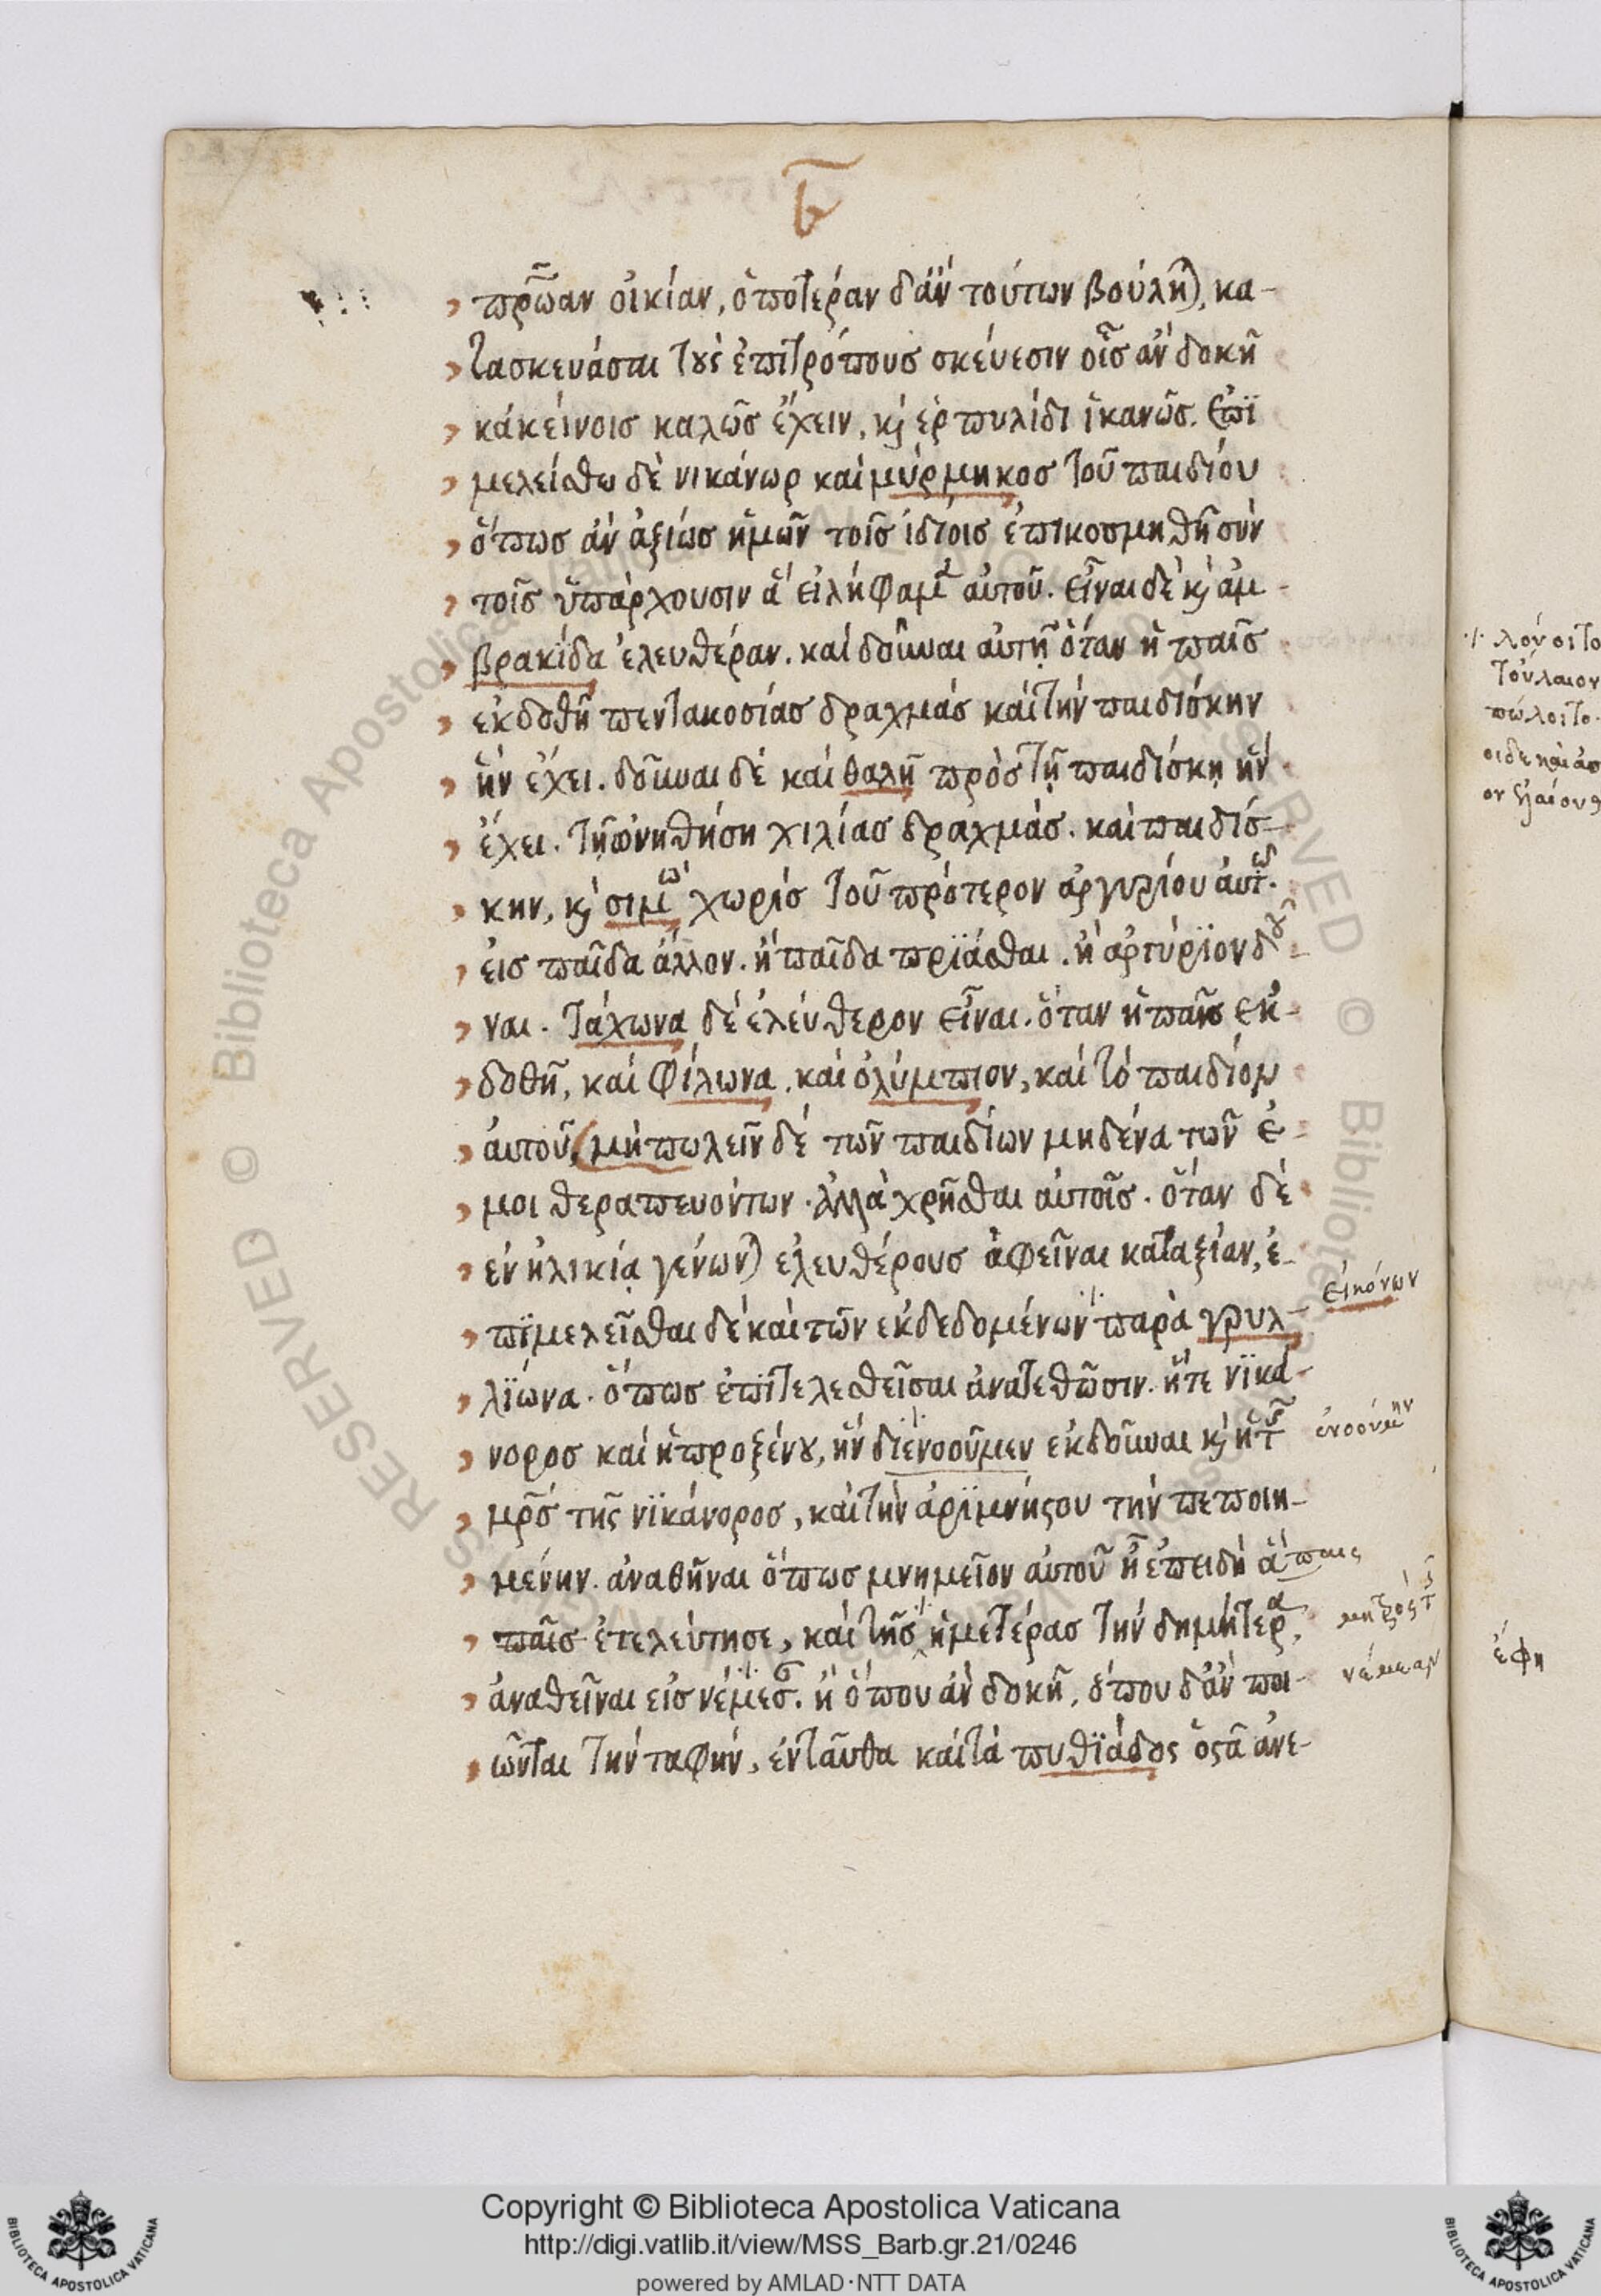 β
πρῴαν οἰκίαν, ὁποτέραν δ' ἂν τούτων βούλητ), κα-
τασκευάσαι τοὺς ἐπιτρόπους σκεύεσιν οἷς ἂν δοκῇ
κἀκείνοις καλῶς ἔχειν, κ) ἑρπυλίδι ἱκανῶς. Ἐπϊ
μελείσθω δὲ νικάνωρ καὶ μύρμηκος τοῦ παιδίου
ὅπως ἂν ἀξίως ἡμῶν τοῖς ἰδίοις ἐπικοσμηθῇ σὺν
τοῖς ὑπάρχουσιν ἃ εἰλήφαμ αὐτοῦ. εἶναι δὲ κ) ἀμ-
βρακίδα ἐλευθέραν. καὶ δοῦναι αὐτῇ ὅταν ἡ παῖς
ἐκδοθῇ πεντακοσίας δραχμὰς καὶ τὴν παιδίσκην
ἣν ἔχει. δοῦναι δὲ καὶ θαλῇ πρὸς τῇ παιδίσκῃ ἣν
ἔχει. τῇ ὠνηθήσῃ χιλίας δραχμάς. καὶ παιδίσ-
κην, κ) σιμω χωρὶς τοῦ πρότερον ἀργυρίου αὐτ.
εἰς παῖδα ἄλλον. ἢ παῖδα πρϊάσθαι. ἢ ἀργύρϊον δȣ-
ναι. Τάχωνα δὲ ἐλεύθερον εἶναι. ὅταν ἡ παῖς ἐκ-
δοθῇ, καὶ φίλωνα. καὶ ὀλύμπιον, καὶ τὸ παιδίον
αὐτοῦ, (μὴ πωλεῖν δὲ τῶν παιδίων μηδένα τῶν ἐ-
μοι θεραπευόντων. ἀλλὰ χρῆσθαι αὐτοῖς. ὅταν δὲ
ἐν ἡλικίᾳ γένων) ἐλευθέρους ἀφεῖναι κατ' ἀξίαν, ἐ-
πϊμελεῖσθαι δὲ καὶ τῶν ἐκδεδομένων παρὰ γρυλ-
εἰκόνων
λϊωνα. ὅπως ἐπϊτελεσθεῖσαι ἀνατεθῶσιν. ἥτε νϊκά-
νορος καὶ ἡ προξένȣ, ἣν διενοοῦμεν ἐκδοῦναι κ) ἡ τ
ἐνοούμην
μρς τῆς νϊκάνορος, καὶ τὴν ἀρϊμνήςου τὴν πεποιη-
μένην. ἀναθῆναι ὅπως μνημεῖον αὐτοῦ ᾖ ἐπειδὴ ἄπαις
παῖς ἐτελεύτησε, καὶ τῆς ἡμετέρας τὴν δημήτερα,
μητρὸς τ
ἀναθεῖναι εἰς νέμεσ. ἢ ὅπου ἂν δοκῇ, ὅπου δ' ἂν ποι-
νέμεαν
ῶνται τὴν ταφὴν, ἐνταῦθα καὶ τὰ πυθϊάδος ὀςᾶ ἀνε-
ἔφη
Copyright © Biblioteca Apostolica Vaticana
http://digi.vatlib.it/view/MSS_Barb.gr.21/0246
powered by AMLAD·NTT DATA
BIBLIOTECA APOSTOLICA VATICANA
BIBLIOTECA APOSTOLICA VATICANA